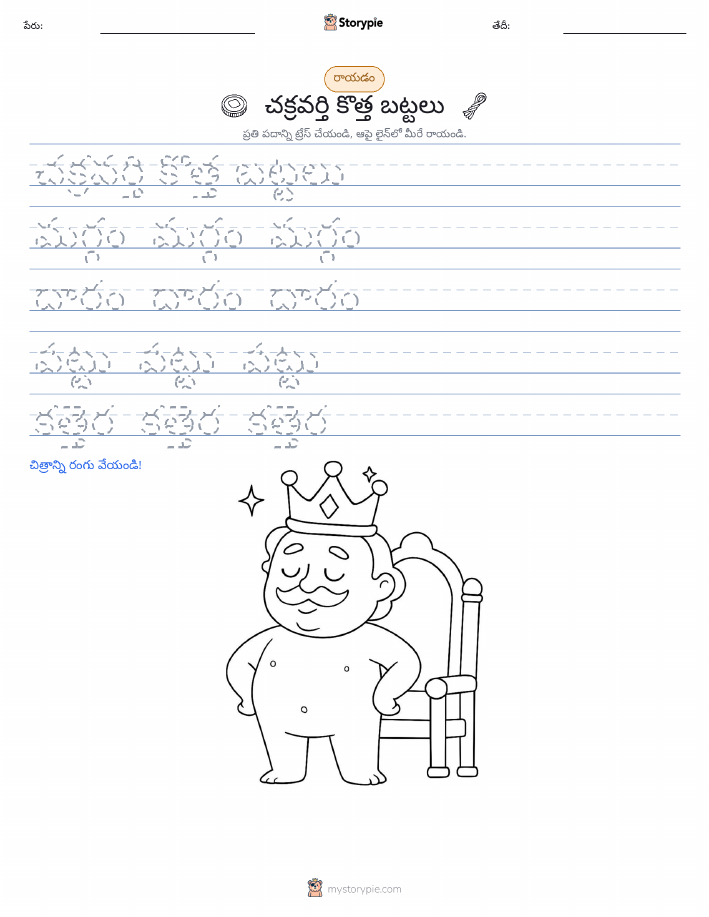 పేరు:
Storypie
తేదీ:
రాయడం
చక్రవర్తి కొత్త బట్టలు
ప్రతి పదాన్ని ట్రేస్ చేయండి, ఆపై లైన్‌లో మీరే రాయండి.
చక్రవర్తి కొత్త బట్టలు
మగ్గం మగ్గం మగ్గం
దారం దారం దారం
పట్టు పట్టు పట్టు
కత్తెర కత్తెర కత్తెర
చిత్రాన్ని రంగు వేయండి!
mystorypie.com